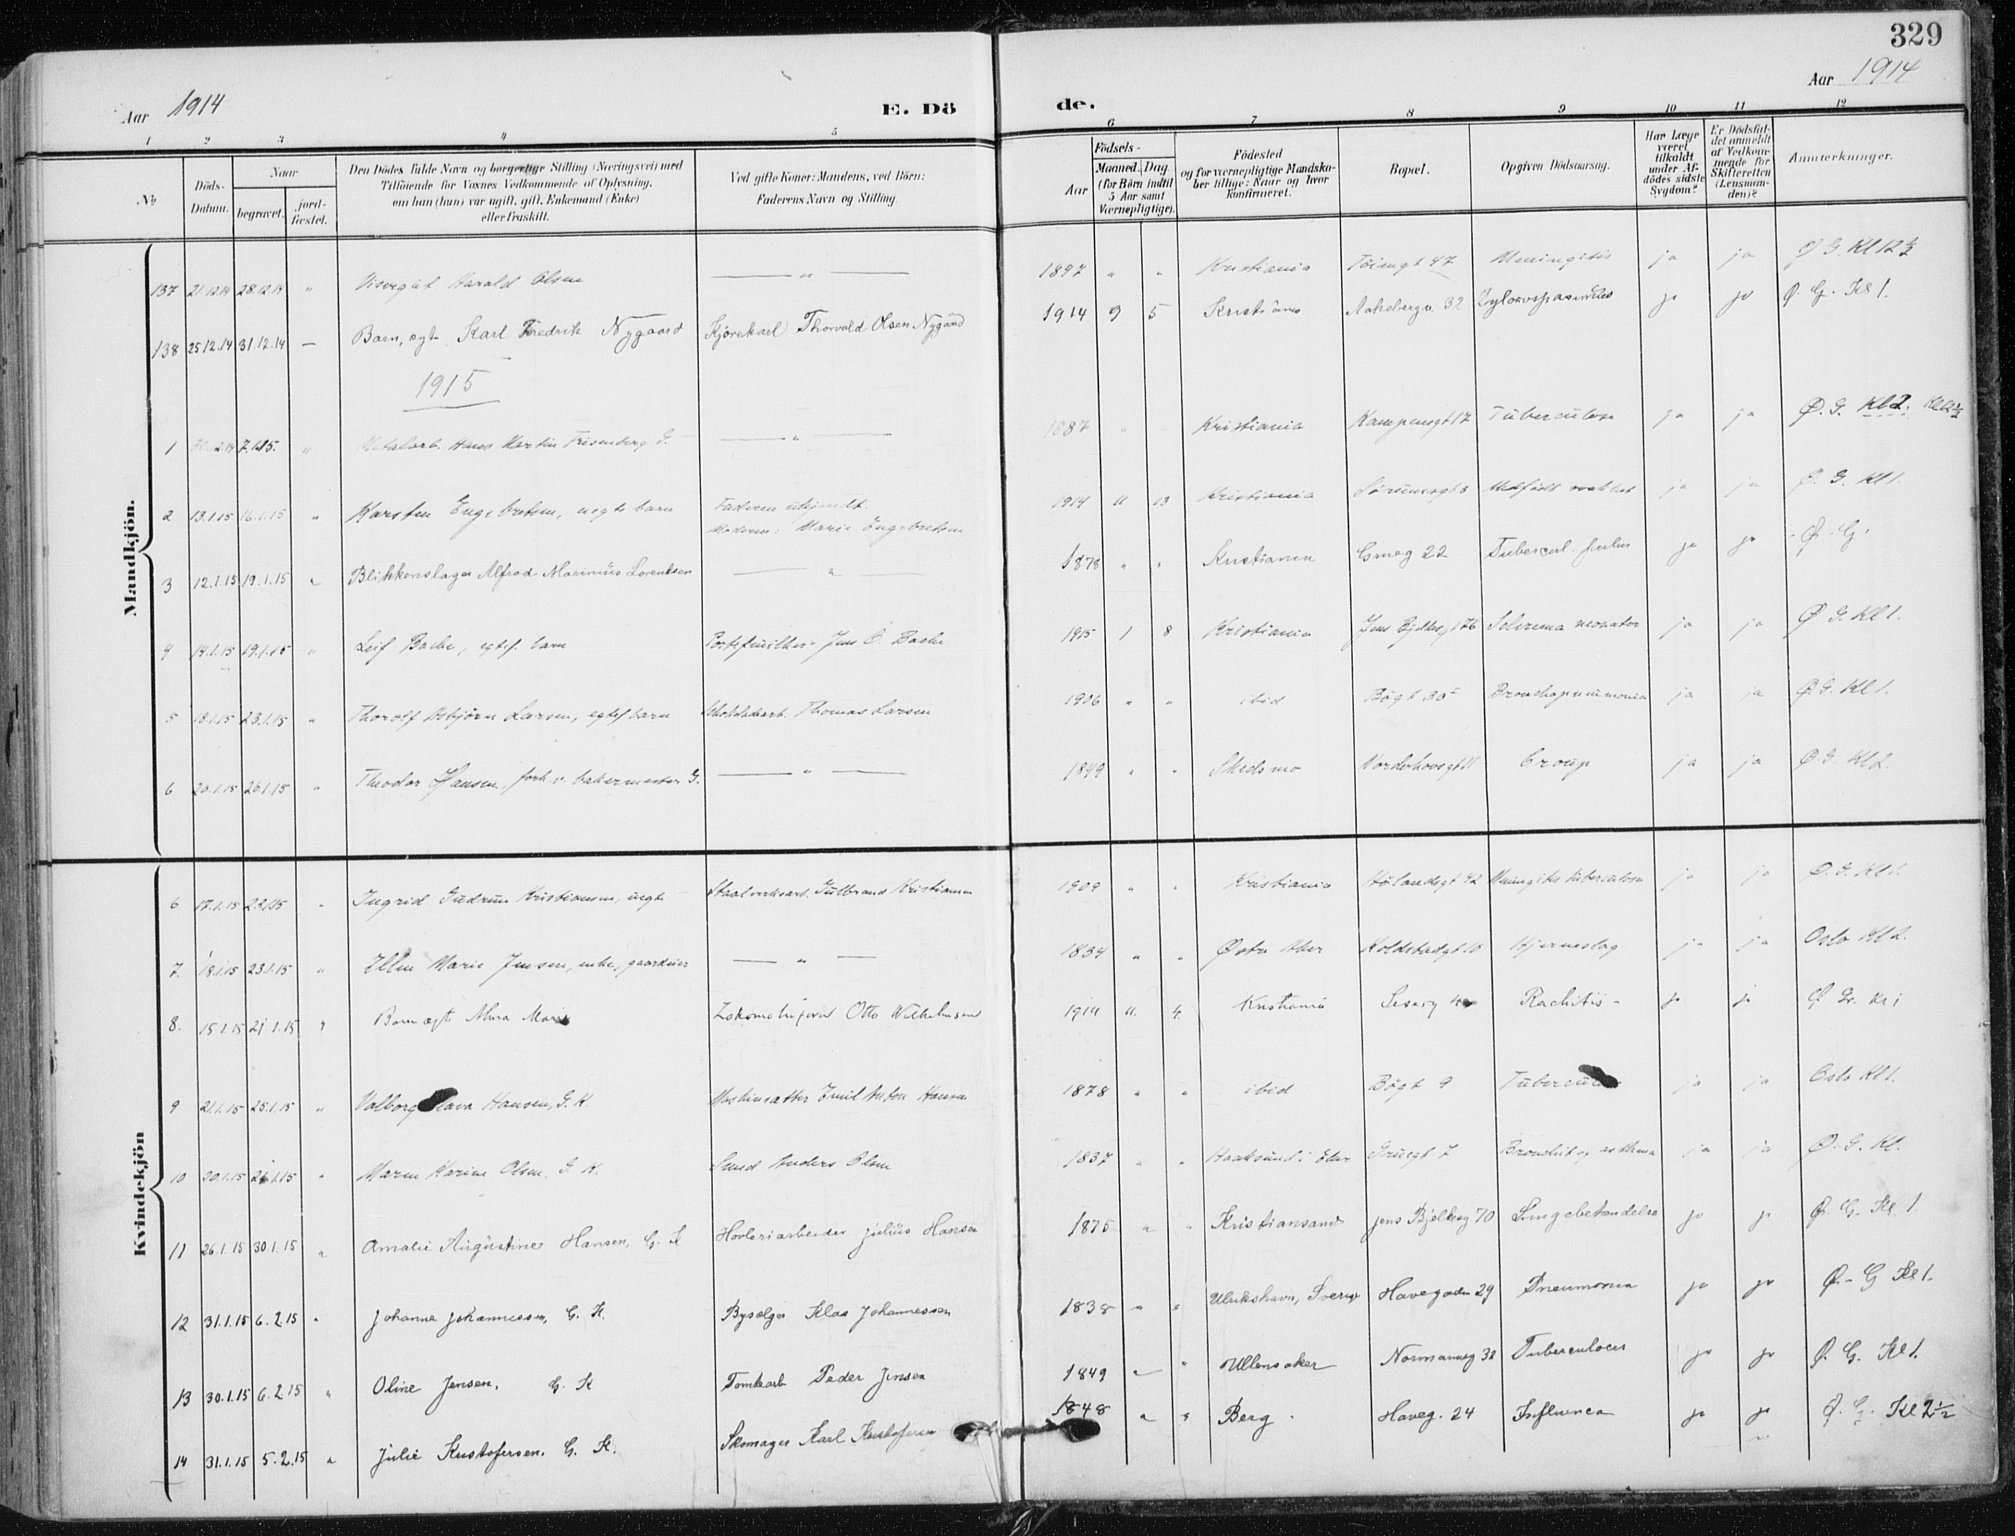 329
Aar 1914 E. Dö de. Aar 1914
1 2 3 4 5 6 7 8 9 10 11 12
№ Döds-Datum. Naar begravet. jord-fæstet. Den Dödes fulde Navn og borgerlige Stilling (Næringsvei) med Tilföiende for Voxnes Vedkommende af Oplysning, om han (hun) var ugift, gift, Enkemand (Enke) eller fraskilt. Ved gifte Koner: Mandens, ved Börn: Faderens Navn og Stilling. Födsels- Aar Maaned. Dag. (for Börn indtil 5 Aar samt Værnepligtige). Födested og for værnepligtige Mandskaber tillige: Naar og hvor konfirmeret. Bopæl. Opgiven Dödsaarsag. Har Læge været tilkaldt under Afdödes sidste Sygdom? Er Dödsfaldet anmeldt af Vedkommende for Skifteretten (Lensmanden)? Anmærkninger.
Mandkjön.
137 21.12.14 28.12.14 " Visergut Harald Olsen — " — 1897 " " Kristiania Töiengt 47 Meningitis ja ja Ø G. Kl 12 ½
138 25.12.14 31.12.14 — Barn, egte Karl Fredrik Nygaard Kjörekarl Thorvald Olsen Nygaard 1914 9 5 Kristiania Aakebergv 32 ja ja Ø. G. Kl 1.
1915
1 7.1.15. " Metalarb. Hans Martin Frisenberg G. — " — 1887 " " Kristiania Kampensgt 17 Tuberculose ja ja Ø. G. Kl 2. Kl 2 ½
2 13.1.15 16.1.15 " Karsten Engebretsen, uegte barn Faderen ukjendt. Moderen: Marie Engebretsen 1914 11 13 Kristiania Sörumsgt 3 Medfödt svakhet ja ja Ø. G. Kl 1.
3 12.1.15 19.1.15 " Blikkenslager Alfred Marinius Lorentsen — " — 1878 " " Kristiania Enveg 22 Tubercul. pulm ja ja Ø. G.
4 14.1.15 19.1.15 " Leif Bache, egtef. barn Jens E. Bache 1915 1 8 Kristiania Sclerema neonator ja ja Ø G. Kl 1.
5 18.1.15 23.1.15 " Thorolf Asbjörn Larsen, egtef barn Thomas Larsen 1906 " " ibid Bögt 30 Bronchopneumonia ja ja Ø. G. Kl 1.
6 20.1.15 26.1.15 " Theodor Hansen, forh.v. bakermester G. — " — 1849 " " Skedsmo Norderhovsgt 11 Croup ja ja Ø G. Kl 2.
Kvindekjön
6 17.1.15 22.1.15 " Ingrid Gudrun Kristiansen, uegte Staalverksarb. Gulbrand Kristiansen 1909 " " Kristiania Hölandsgt 42 Meningitis tuberculosa ja ja Ø. G. Kl 1.
7. 18.1.15 23.1.15 " Ellen Marie Jensen, enke, — " — 1834 " " Östre Aker Koldstadgt 10 Hjerneslag ja ja Oslo Kl 2.
8. 15.1.15 21.1.15 " Barn egte Alma Marie Lokomotivförer Otto Wilhelmsen 1914 11. 4. Kristiania Rachitis ja ja Ø Gr. Kl 1
9 21.1.15 25.1.15 " Valborg Hansen, G. K. Emil Anton Hansen 1878 " " ibid Bögt 9 ja ja Oslo Kl 1.
10 20.1.15 26.1.15 " Maren Karine Olsen, G. K. Smed Anders Olsen 1837 " " Haaksund i Eker Gruegt 7 Bronchit og asthma ja ja Ø. G. Kl.
11 26.1.15 30.1.15 " Amalie Augustine Hansen, G. K Hövleriarbeider Julius Hansen 1875 " " Kristiansand Jens Bjelkesg 70 Lungebetændelse ja ja Ø. G. Kl 1
12 31.1.15 6.2.15 " Johanne Johannessen, G. K. Bysælger Klas Johannessen 1838 " " Ulrikshavn, Sverige Havegaden 29 Pneumonia ja ja Ø. G Kl 1.
13 30.1.15 6.2.15 " Oline Jensen, G. K Tomtearb Peder Jensen 1849 " " Ullensaker Normannsg 32 Tuberculoses ja ja Ø. G. Kl 1.
14 31.1.15 5.2.15 " Julie Kristofersen. G. K. Skomager Karl Kristofersen 1848 " " Berg Haveg. 24 Influenca ja ja Ø. G. Kl 2 ½